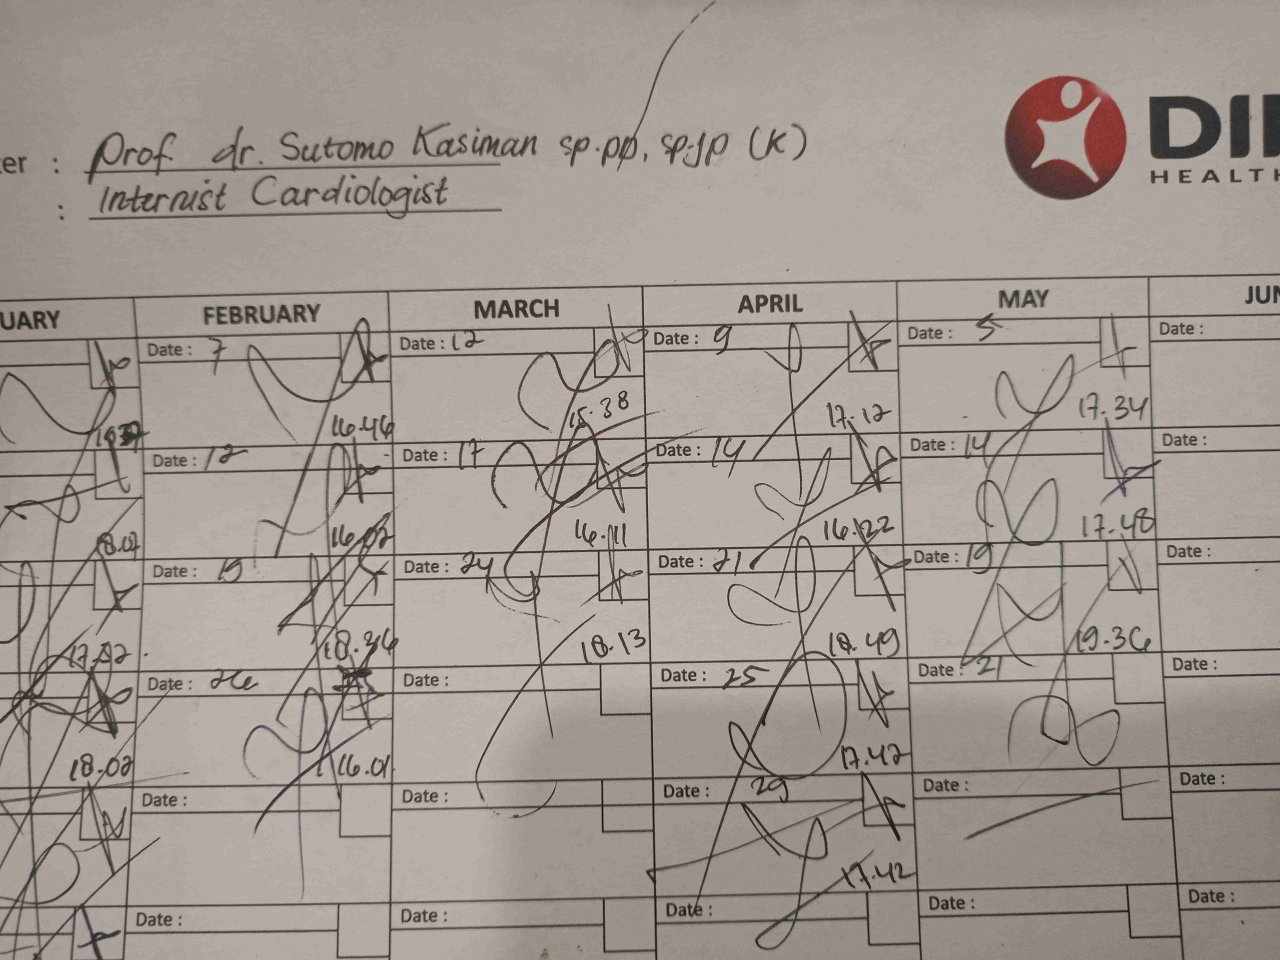 er : Prof dr. Sutomo Kasiman sp.pp, sp.jp (K)
: Internist Cardiologist
DI
HEALTH
UARY FEBRUARY MARCH APRIL MAY JUN
Date : 7 Date : 12 Date : 9 Date : 5 Date :
16.46 15.38 17.12 17.34
Date : 12 Date : 17 Date : 14 Date : 14 Date :
18.07 16.02 16.11 16.22 17.48
Date : 19 Date : 24 Date : 21 Date : 19 Date :
17.02 18.36 18.13 18.49 19.36
Date : 26 Date : Date : 25 Date : 21 Date :
18.02 16.01 17.42
Date : Date : Date : 29 Date : Date :
17.42
Date : Date : Date : Date : Date :